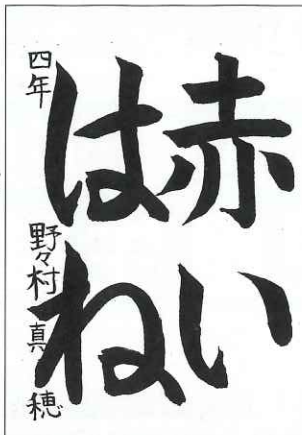 赤い
はね
四年 野々村 真穂